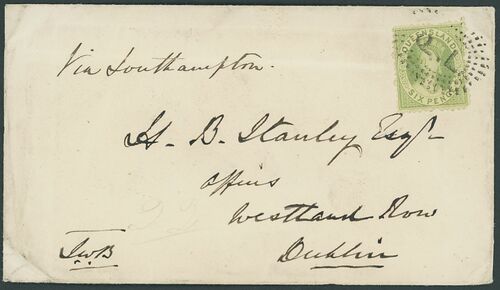 Via Southampton.
QUEENSLAND
SIX PENCE
QL
H. B. Stanley Esqr
Offices
Westland Row
Dublin
J.W.B